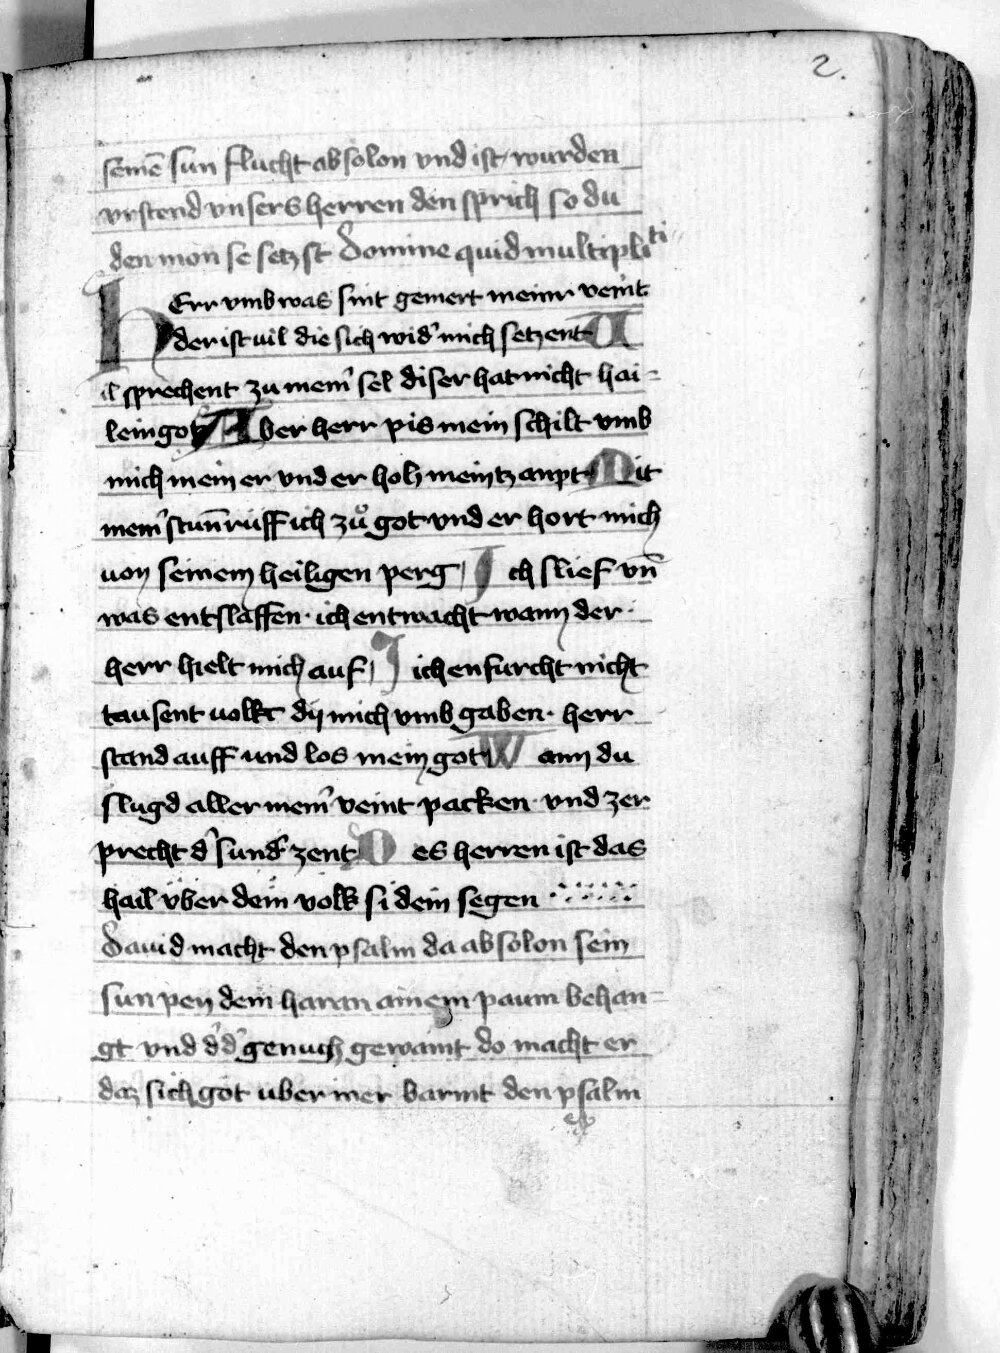 2.
seinē sun flucht absolon vnd ist wurden
vrstend vnsers herren den sprich so du
den mon se setzst Domine quid multipli ti
HErr vmb was sint gemert meinr veint
der ist uil die sich wid' mich setzent U
il sprechent zu mein' sel diser hat nicht hai=
lein got Aber herr pis mein schilt vmb
mich mein er vnd er hoh mein tz aupt Mit
mein' stun̄ rüff ich zů got vnd er hort mich
von seinem heiligen perg Ich slief vn̄
was entslaffen · ich entwacht wann der ·
herr hielt mich auf J ich enfurcht nicht
tausent uolkt dy mich vmb gaben · herr
stand auff und los mein got Wann du
slugd aller mein' veint packen · vnd zer
precht d' sund' zent Des herren ist das
hail vber dein volk si dein segen
Dauid macht den psalm da absolon sein
sun pey dem haran ainem paum behan=
gt vnd d' d' genuch gewaint do macht er
daz sich got uber mer barmt den psalm